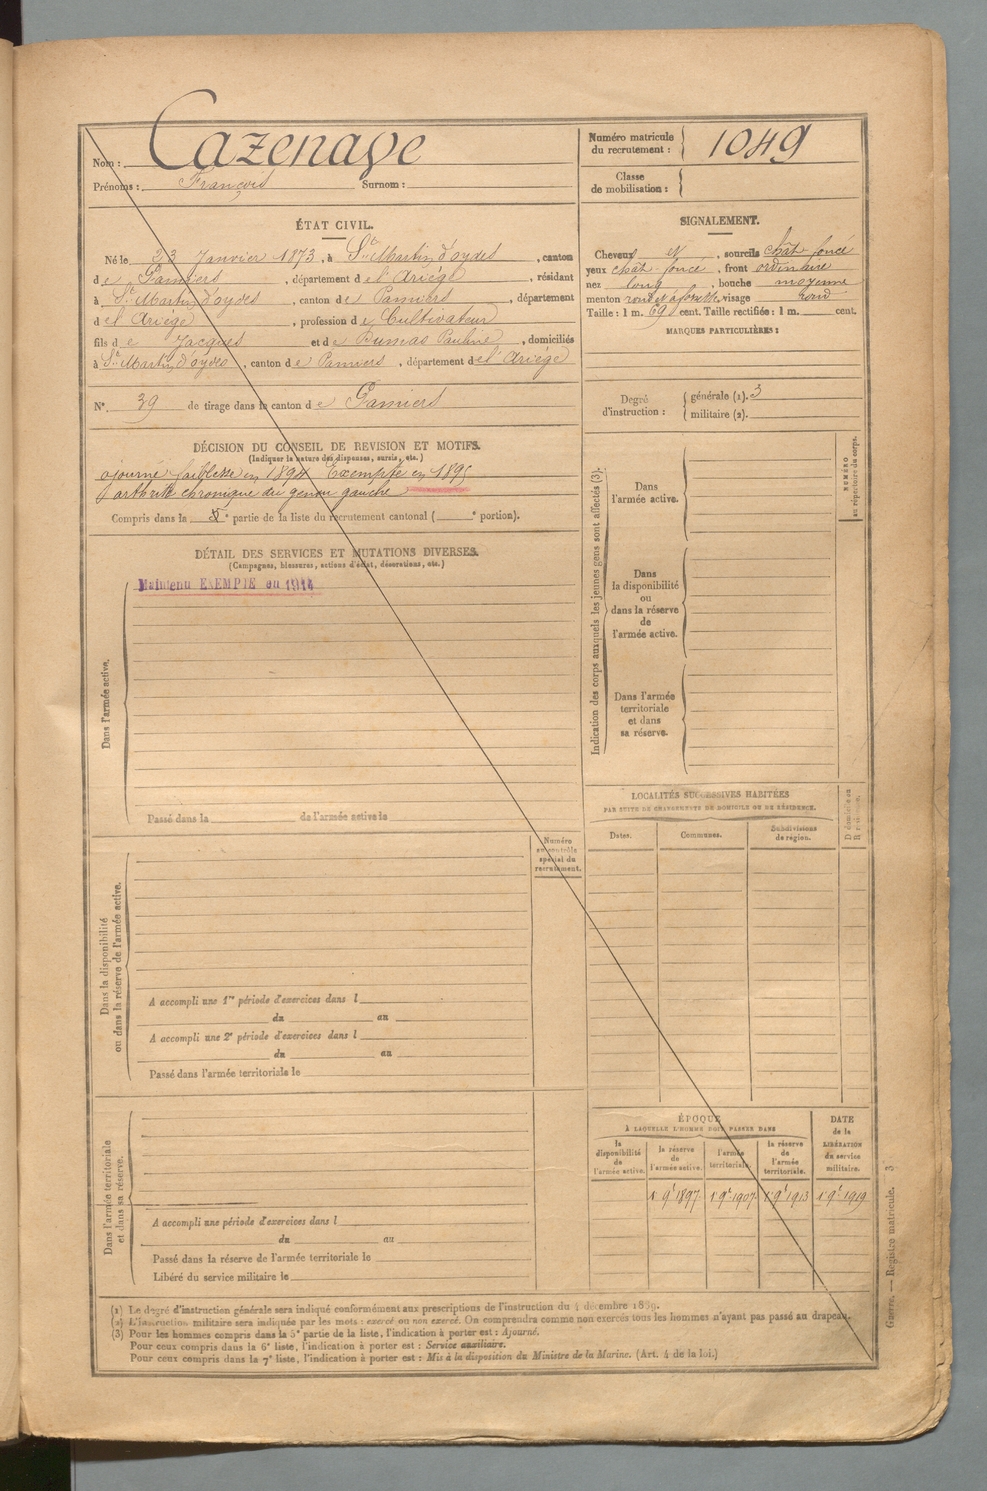 Nom : Cazenave
Prénoms : François Surnom :
Numéro matricule du recrutement : 1049
Classe de mobilisation :
ÉTAT CIVIL.
Né le 23 Janvier 1873, à St Martin d'oydes, canton
de Pamiers, département de l'Ariége, résidant
à St Martin d'oydes, canton de Pamiers, département
de l'Ariége, profession de Cultivateur
fils de Jacques et de Dumas Pauline, domiciliés
à St Martin d'oydes, canton de Pamiers, département de l'Ariége
N° 39 de tirage dans le canton de Pamiers
SIGNALEMENT.
Cheveux N, sourcils chât. foncé
yeux chât. foncé, front ordinaire
nez long, bouche moyenne
menton rond et à fossette, visage rond
Taille : 1 m. 69 cent. Taille rectifiée : 1 m. cent.
MARQUES PARTICULIÈRES :
Degré d'instruction : générale (1). 3
militaire (2).
DÉCISION DU CONSEIL DE REVISION ET MOTIFS.
(Indiquer la nature des dispenses, sursis, etc.)
ajourné faiblesse en 1894 Exempté en 1895
arthrite chronique du genou gauche
Compris dans la e partie de la liste du recrutement cantonal ( e portion).
DÉTAIL DES SERVICES ET MUTATIONS DIVERSES.
(Campagnes, blessures, actions d'éclat, décorations, etc.)
Maintenu EXEMPTÉ en 1914
Dans l'armée active.
Passé dans la de l'armée active le
Numéro au contrôle spécial du recrutement.
Dans la disponibilité ou dans la réserve de l'armée active.
A accompli une 1re période d'exercices dans l
du au
A accompli une 2e période d'exercices dans l
du au
Passé dans l'armée territoriale le
Dans l'armée territoriale et dans sa réserve.
A accompli une période d'exercices dans l
du au
Passé dans la réserve de l'armée territoriale le
Libéré du service militaire le
Indication des corps auxquels les jeunes gens sont affectés (3).
Dans l'armée active.
Dans la disponibilité ou dans la réserve de l'armée active.
Dans l'armée territoriale et dans sa réserve.
NUMÉRO au répertoire du corps.
LOCALITÉS SUCCESSIVES HABITÉES
PAR SUITE DE CHANGEMENTS DE DOMICILE OU DE RÉSIDENCE.
Dates. Communes. Subdivisions de région. D domicile ou R résidence.
ÉPOQUE
À LAQUELLE L'HOMME DOIT PASSER DANS
DATE de la LIBÉRATION du service militaire.
la disponibilité de l'armée active. la réserve de l'armée active. l'armée territoriale. la réserve de l'armée territoriale.
1 9bre 1897 1 9bre 1907 1 9bre 1913 1 9bre 1919
(1) Le degré d'instruction générale sera indiqué conformément aux prescriptions de l'instruction du 4 décembre 1889.
(2) L'instruction militaire sera indiquée par les mots : exercé ou non exercé. On comprendra comme non exercés tous les hommes n'ayant pas passé au drapeau.
(3) Pour les hommes compris dans la 5e partie de la liste, l'indication à porter est : Ajourné.
Pour ceux compris dans la 6e liste, l'indication à porter est : Service auxiliaire.
Pour ceux compris dans la 7e liste, l'indication à porter est : Mis à la disposition du Ministre de la Marine. (Art. 4 de la loi.)
Guerre. — Registre matricule. 3